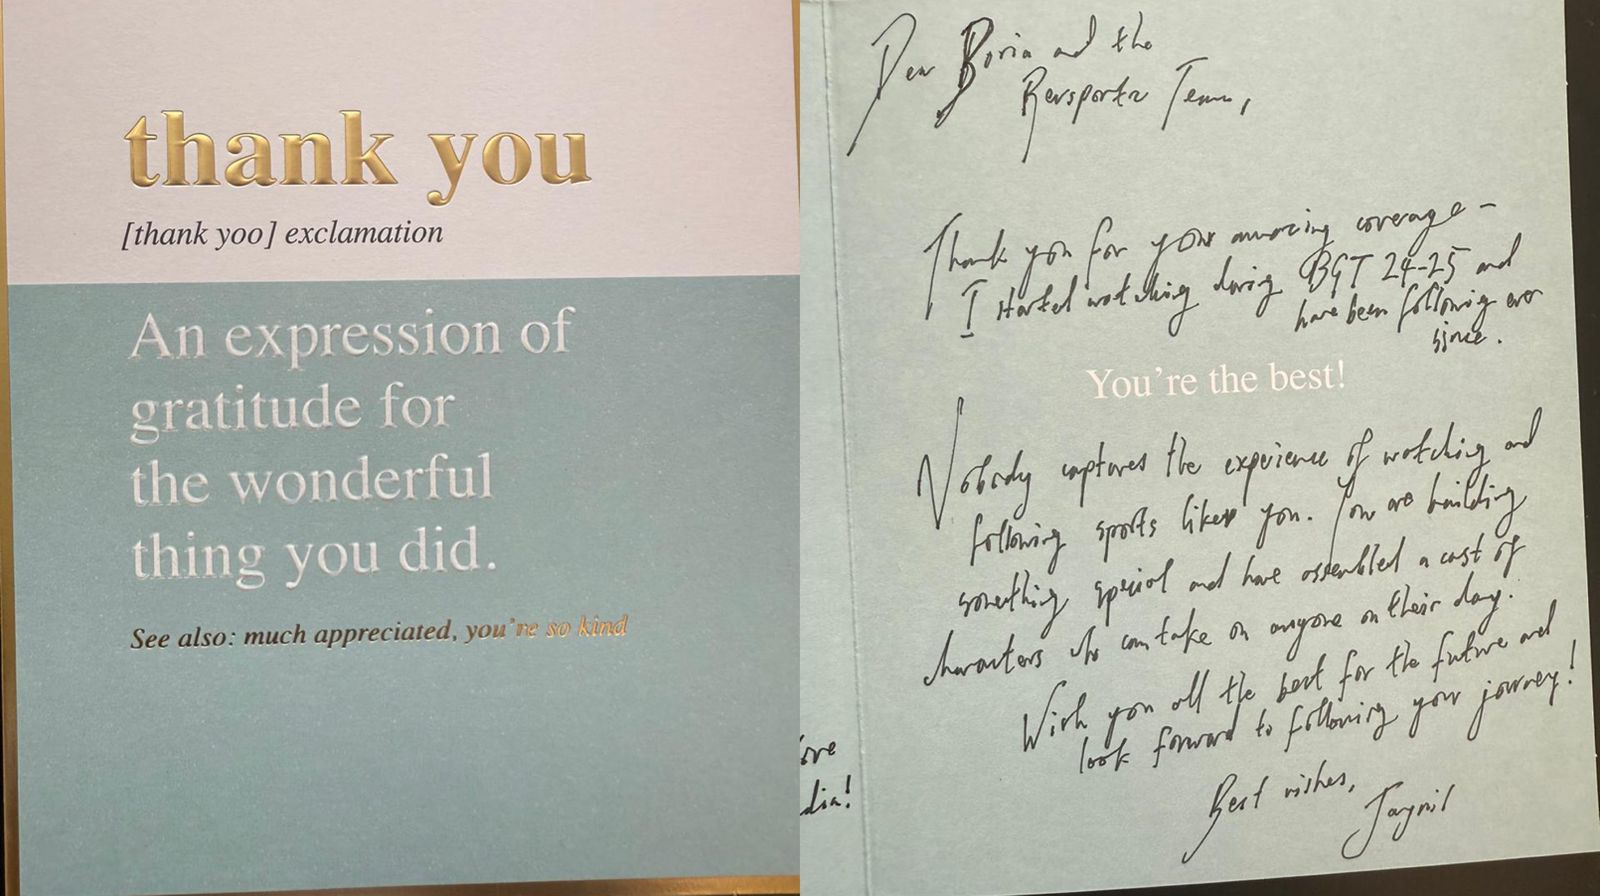 thank you
[thank yoo] exclamation
An expression of
gratitude for
the wonderful
thing you did.
See also: much appreciated, you're so kind
Dear Boria and the
Revsportz Team,
Thank you for your amazing coverage -
I started watching during BGT 24-25 and
have been following ever
since.
You're the best!
Nobody captures the experience of watching and
following sports like you. You are building
something special and have assembled a cast of
characters who can take on anyone on their day.
Wish you all the best for the future and
look forward to following your journey!
Best wishes,
Jaynil